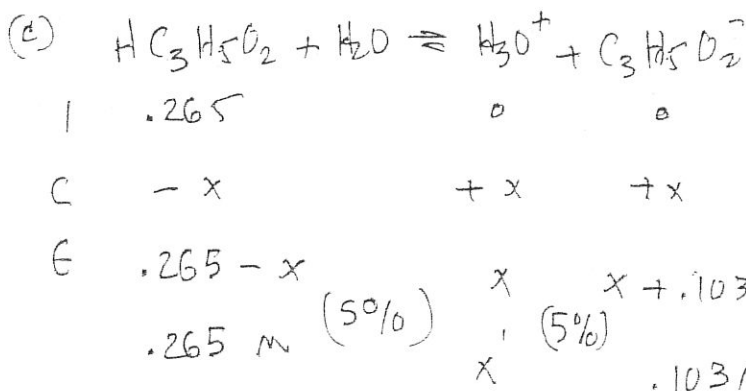 (d) HC₃H₅O₂ + H₂O ⇌ H₃O⁺ + C₃H₅O₂⁻
I .265 0 0
C - x + x + x
E .265 - x x x + .103
.265 M (5%) x (5%) .103